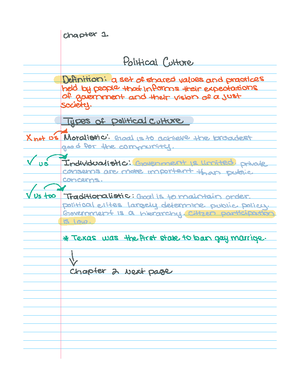 Chapter 1
Political Culture
Definition: a set of shared values and practices
held by people that informs their expectations
of government and their vision of a just
society.
Types of political culture
X not us Moralistic: Goal is to achieve the broadest
good for the community.
✓ us Individualistic: Government is limited private
concerns are more important than public
concerns.
✓ us too Traditionalistic: Goal is to maintain order
political elites largely determine public policy
Government is a hierarchy. Citizen participation
is low.
* Texas was the first state to ban gay marrige.
↓
Chapter 2 Next page